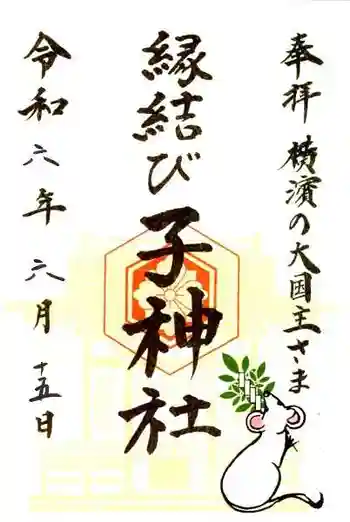 奉拝 横濱の大国主さま
縁結び 子神社
令和六年 六月 十五日